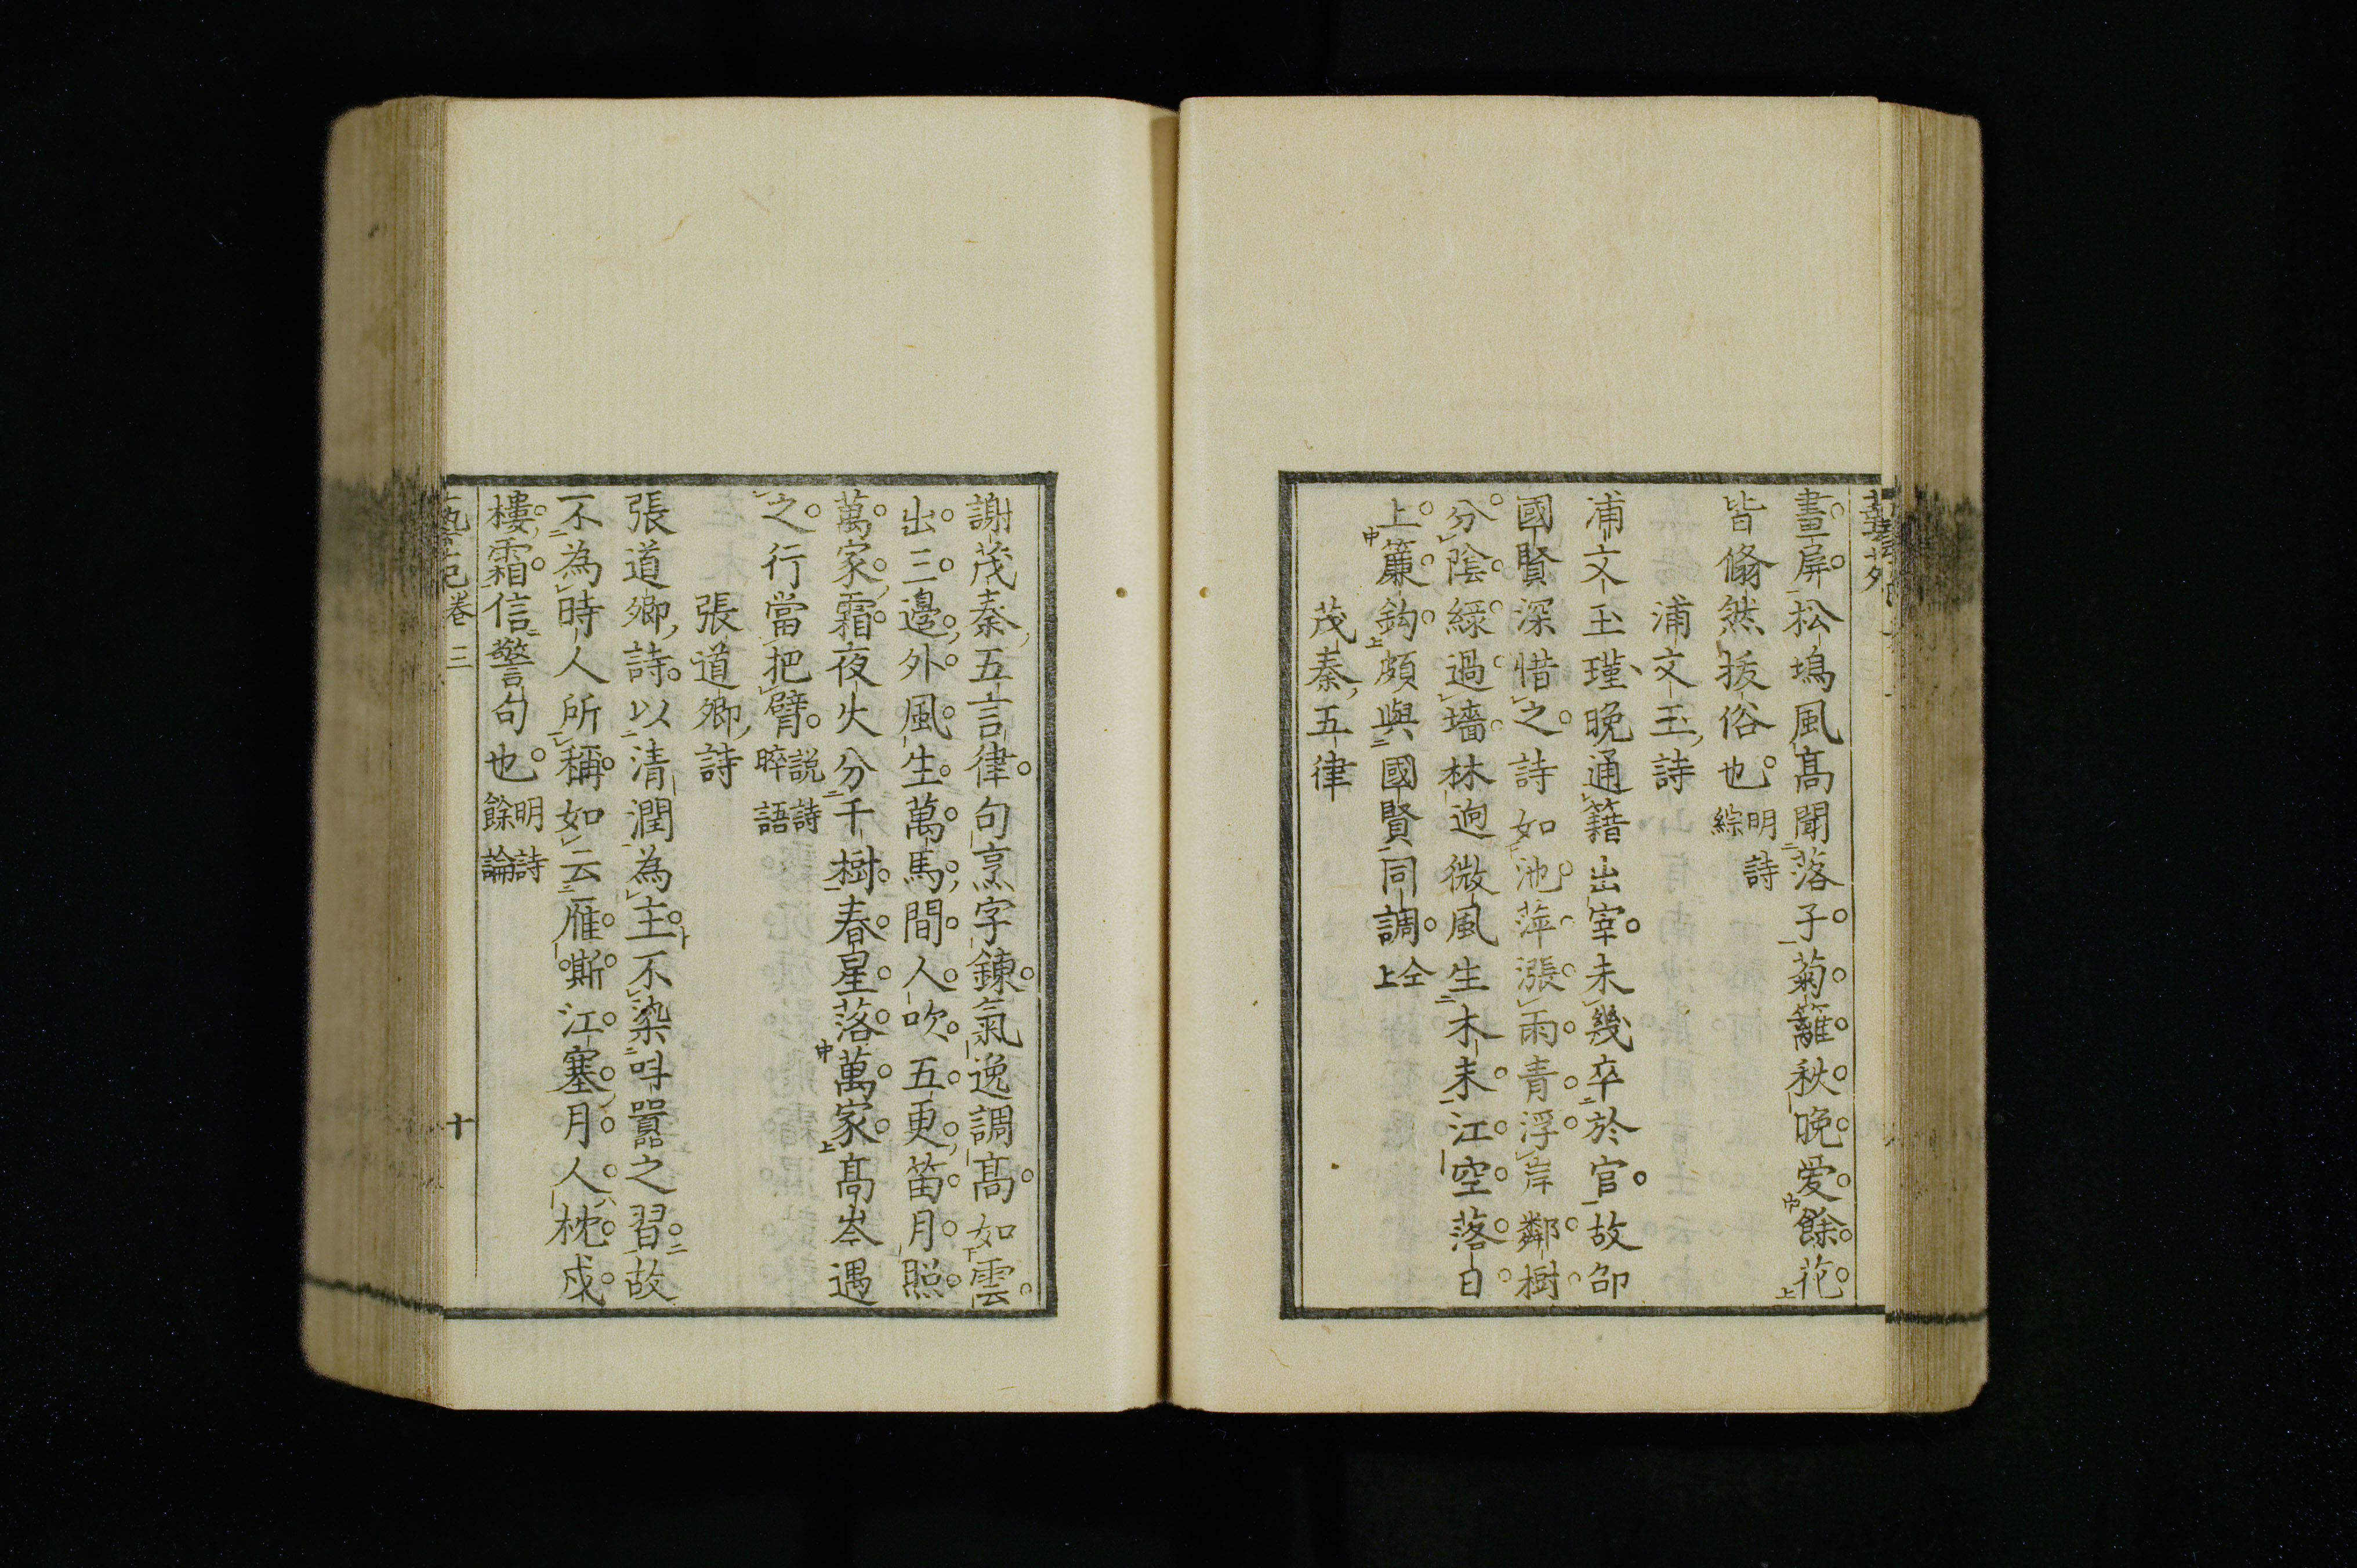 畫屏松塢風高聞落子菊籬秋晚爱餘花
皆翛然拔俗也明詩綜
浦文玉詩
浦文玉瑾晚通籍出宰未幾卒於官故邵
國賢深惜之詩如池萍漲雨青浮岸鄰樹
分陰綠過墻林逈微風生木末江空落日
上簾鈎頗與國賢同調仝上
茂秦五律
謝茂秦五言律句烹字鍊氣逸調高如雲
出三邉外風生萬馬間人吹五更笛月照
萬家霜夜火分千樹春星落萬家高岑遇
之行當把臂説詩晬語
張道卿詩
張道卿詩以清潤為主不染呌嚻之習故
不為時人所稱如云雁嘶江塞月人枕戍
樓霜信警句也明詩餘論
藝苑卷三
十